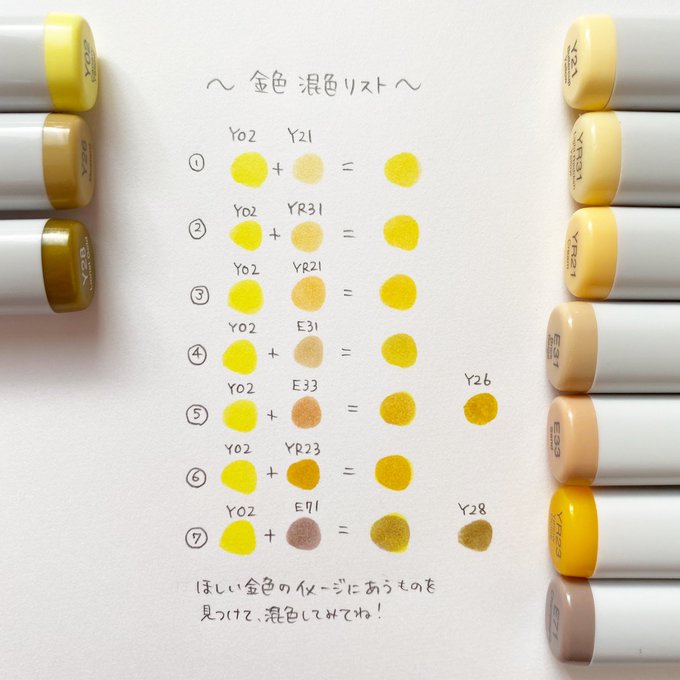 ～ 金色 混色リスト ～
Y02 Y21
① + =
Y02 YR31
② + =
Y02 YR21
③ + =
Y02 E31
④ + =
Y02 E33 Y26
⑤ + =
Y02 YR23
⑥ + =
Y02 E71 Y28
⑦ + =
ほしい金色のイメージにあうものを
見つけて、混色してみてね！
Y02
Y26
Y28
Y21
YR31
YR21
Cream
E31
E33
Sand
YR23
E71